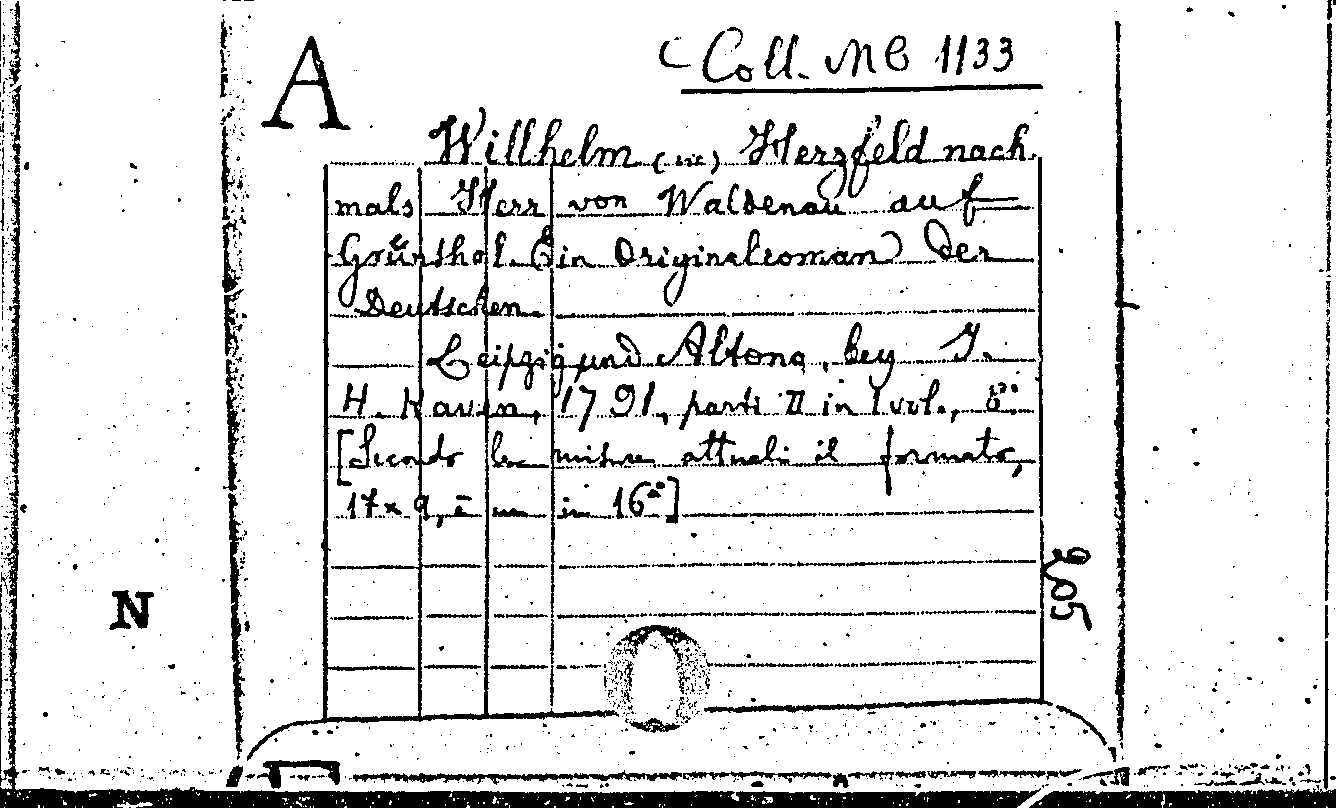 A
Coll. MB 1133
Willhelm (sic) Herzfeld nach
mals Herr von Waldenau auf
Grünthal. Ein Originalroman der
Deutschen.
Leipzig und Altona, bey J.
H. Kaven, 1791, parti II in 1 vol., 8°.
[Secondo le misure attuali il formato,
17x9, è un in 16°]
N
205